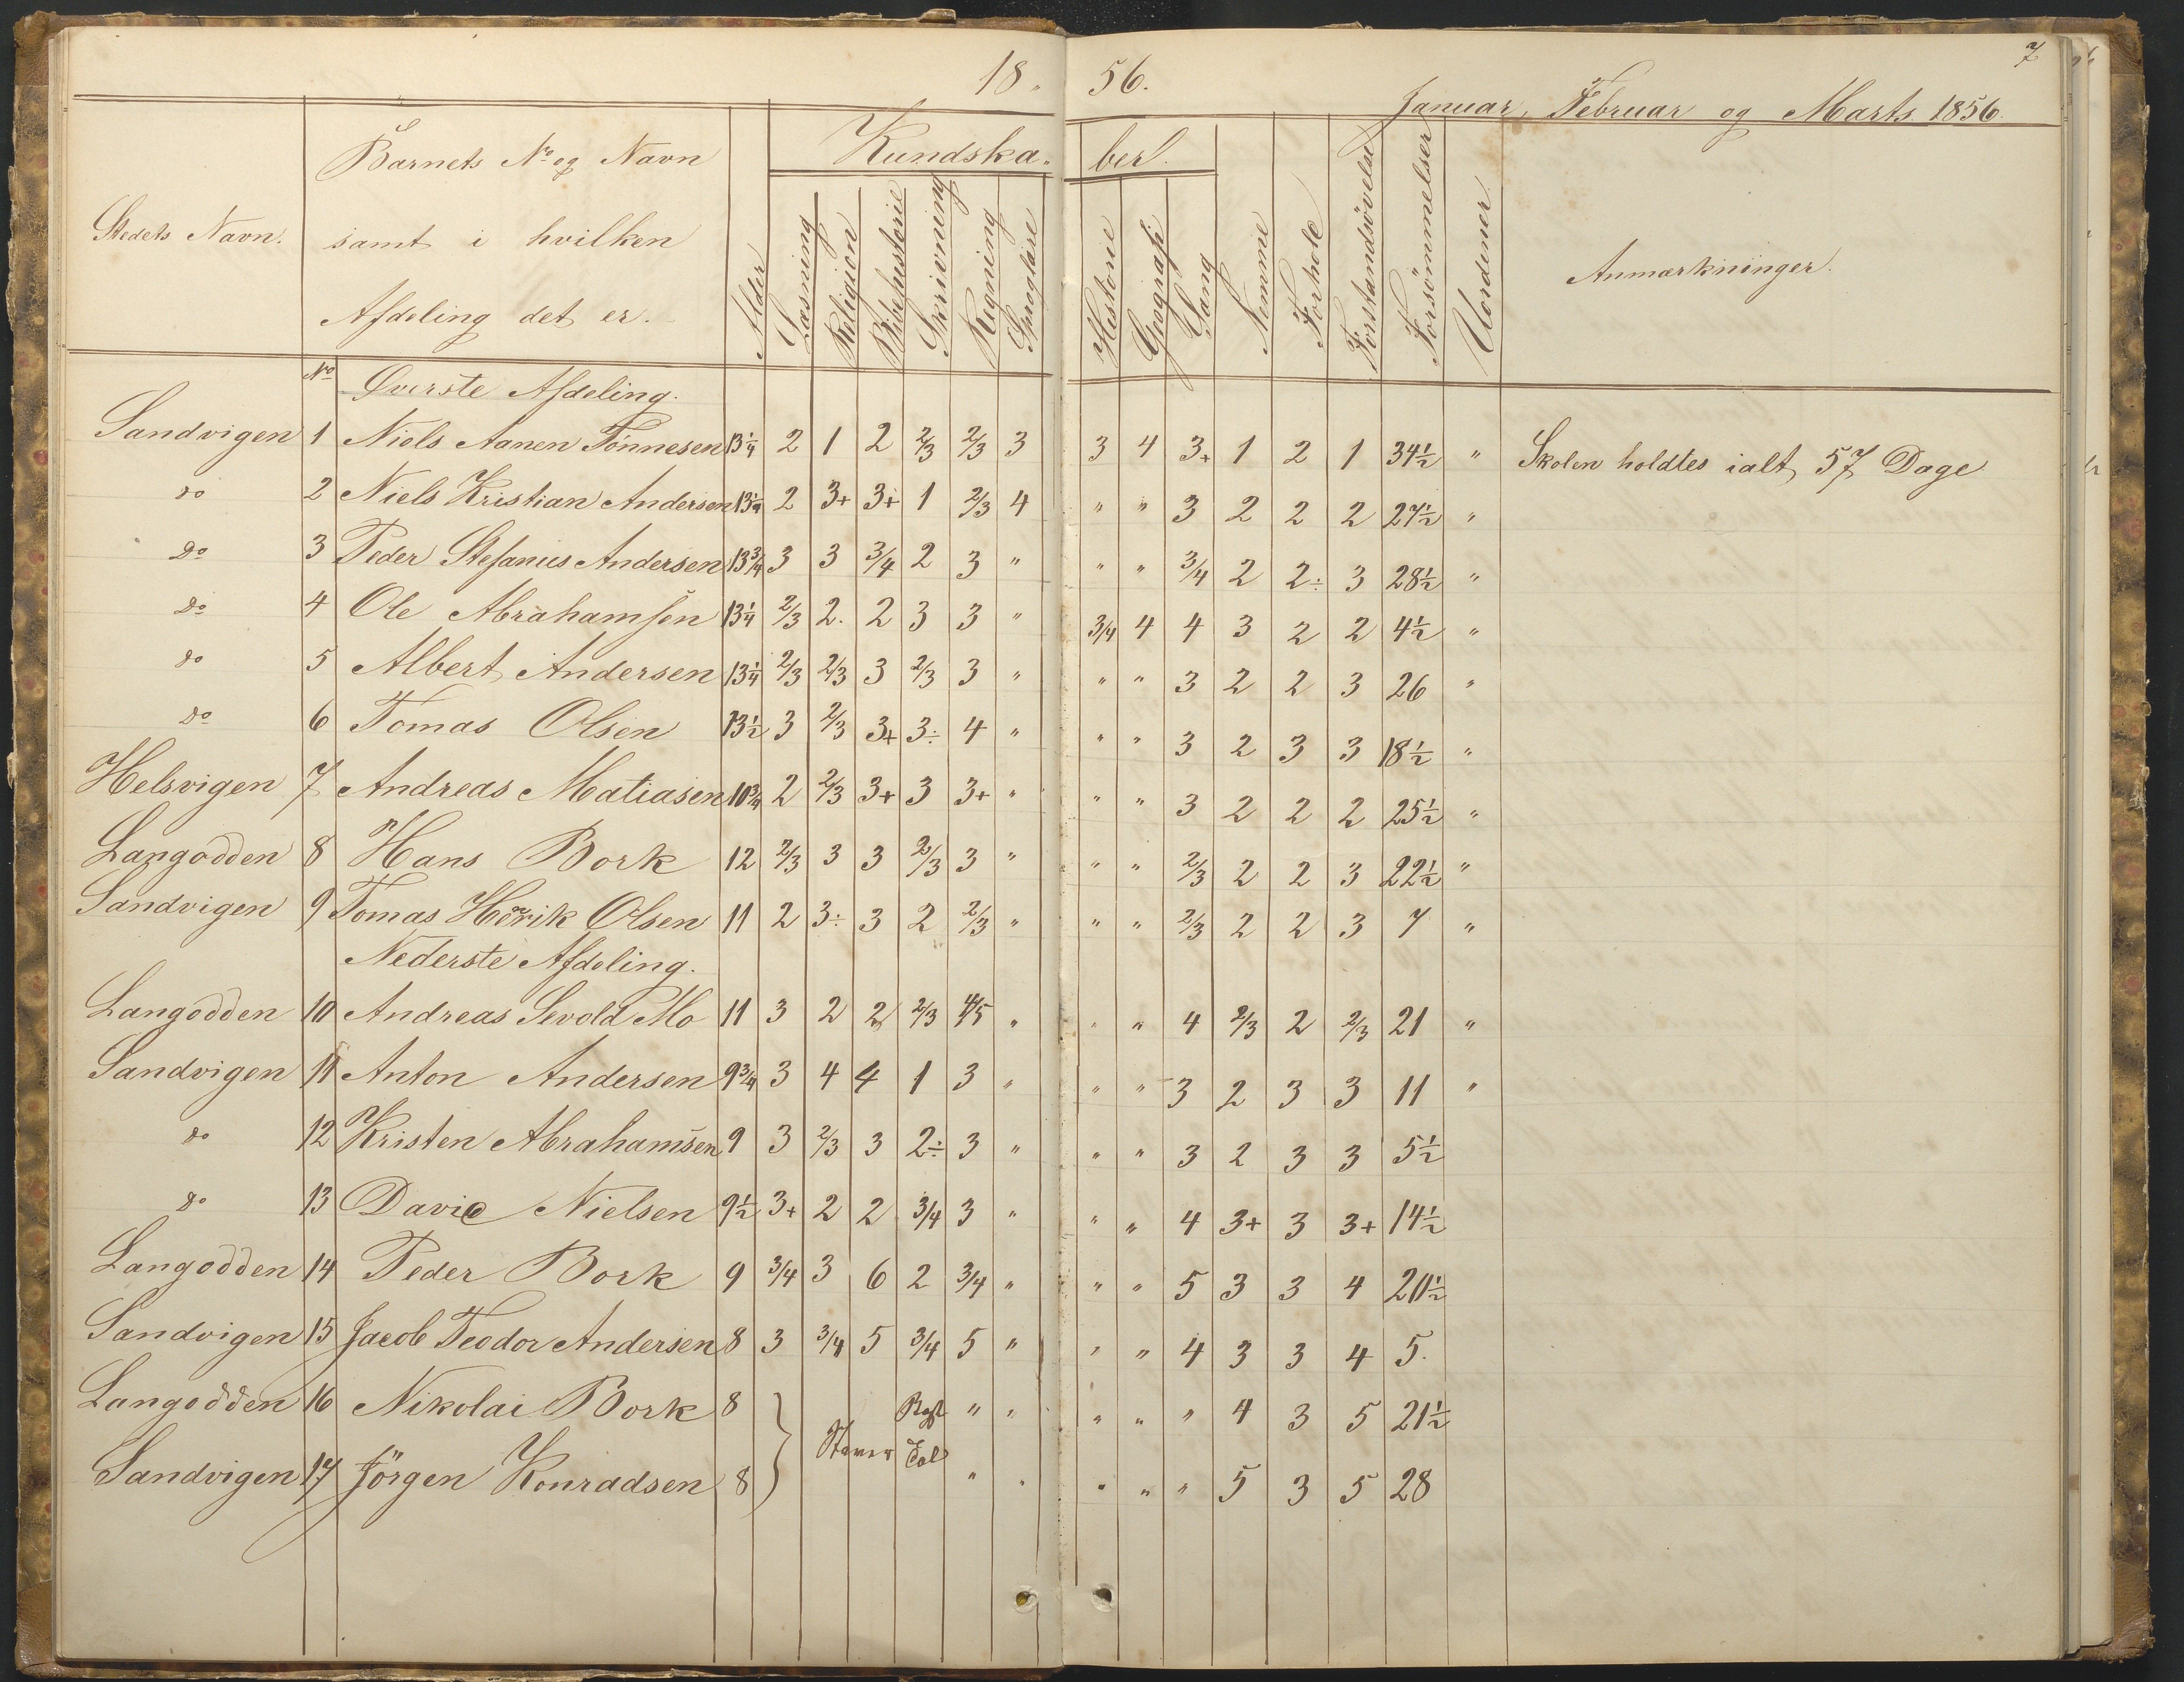 18. 56.
7
Januar, Februar og Marts 1856.
Stedets Navn.
Barnets No og Navn
samt i hvilken
Afdeling det er.
Alder
Kundska- ber.
Læsning
Religion
Bibelhistorie
Skrivning
Regning
Sproglære
Historie
Geografi
Sang
Nemme
Forhold
Forstandsövelse
Forsömmelser
Uordener
Anmærkninger.
No Överste Afdeling.
Sandvigen 1 Niels Aanen Tönnesen 13¼ 2 1 2 2/3 2/3 3 3 4 3+ 1 2 1 34½ " Skolen holdtes ialt 57 Dage
do 2 Niels Kristian Andersen 13¼ 2 3+ 3+ 1 2/3 4 " " 3 2 2 2 27½ "
Do 3 Peder Stefanius Andersen 13¾ 3 3 3/4 2 3 " " " 3/4 2 2÷ 3 28½ "
Do 4 Ole Abrahamsen 13¼ 2/3 2. 2 3 3 " 3/4 4 4 3 2 2 4½ "
do 5 Albert Andersen 13¼ 2/3 2/3 3 2/3 3 " " " 3 2 2 3 26 "
do 6 Tomas Olsen 13½ 3 2/3 3+ 3÷ 4 " " " 3 2 3 3 18½ "
Helsvigen 7 Andreas Matiasen 10¾ 2 2/3 3+ 3 3+ " " " 3 2 2 2 25½ "
Langodden 8 Hans Bork 12 2/3 3 3 2/3 3 " " " 2/3 2 2 3 22½ "
Sandvigen 9 Tomas Henrik Olsen 11 2 3÷ 3 2 2/3 " " " 2/3 2 2 3 7 "
Nederste Afdeling.
Langodden 10 Andreas Sevold Mo 11 3 2 2 2/3 4/5 " " " 4 2/3 2 2/3 21 "
Sandvigen 11 Anton Andersen 9¾ 3 4 4 1 3 " " " 3 2 3 3 11 "
do 12 Kristen Abrahamsen 9 3 2/3 3 2÷ 3 " " " 3 2 3 3 5½
do 13 David Nielsen 9½ 3+ 2 2 3/4 3 " " " 4 3+ 3 3+ 14½
Langodden 14 Peder Bork 9 3/4 3 6 2 3/4 " " " 5 3 3 4 20½
Sandvigen 15 Jacob Teodor Andersen 8 3 3/4 5 3/4 5 " " " 4 3 3 4 5.
Langodden 16 Nikolai Bork 8 } " " " " " 4 3 5 21½
Staver
Sandvigen 17 Jörgen Konradsen 8 " " " " " 5 3 5 28